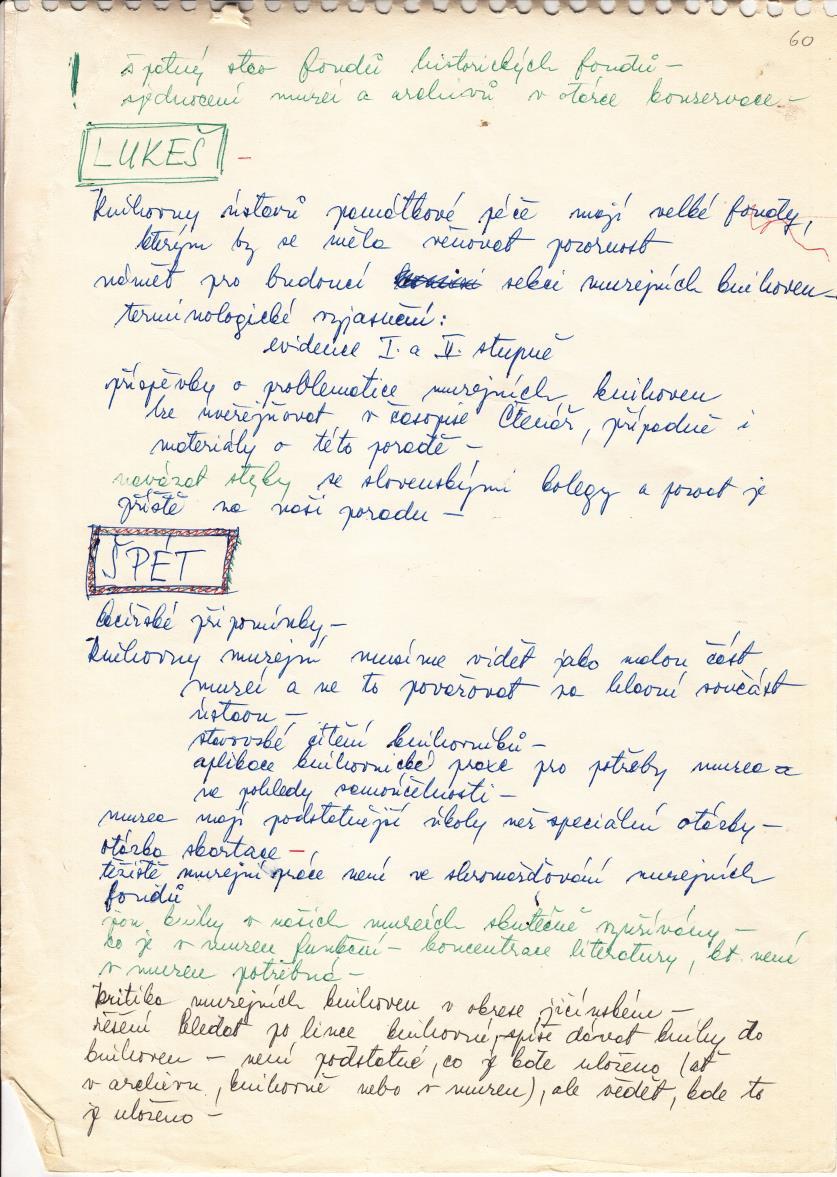 60
špatný stav fondů historických fondů –
sjednocení muzeí a archivů v otázce konservace –
LUKEŠ –
Knihovny ústavů památkové péče mají velké fondy,
kterým by se měla věnovat pozornost
námět pro budoucí sekci muzejních knihoven –
terminologické vyjasnění:
evidence I. a II. stupně
příspěvky o problematice muzejních knihoven
lze uveřejňovat v časopise Čtenář, případně i
materiály o této poradě –
navázat styky se slovenskými kolegy a pozvat je
příště na naši poradu –
ŠPÉT
kacířské připomínky –
Knihovny muzejní musíme vidět jako malou část
muzeí a ne to považovat za hlavní součást
ústavu –
stavovské cítění knihovníků –
aplikace knihovnické praxe pro potřeby muzea a
ne pohledy samoúčelnosti –
muzea mají podstatnější úkoly než speciální otázky –
otázka skartace –
těžiště muzejní práce není ve shromažďování muzejních
fondů
jsou knihy v našich muzeích skutečně využívány –
co je v muzeu funkční – koncentrace literatury, kt. není
v muzeu potřebná –
kritika muzejních knihoven v okrese jičínském –
řešení hledat po lince knihovné, spíše dávat knihy do
knihoven – není podstatné, co je kde uloženo (ať
v archivu, knihovně nebo v muzeu), ale vědět, kde to
je uloženo –